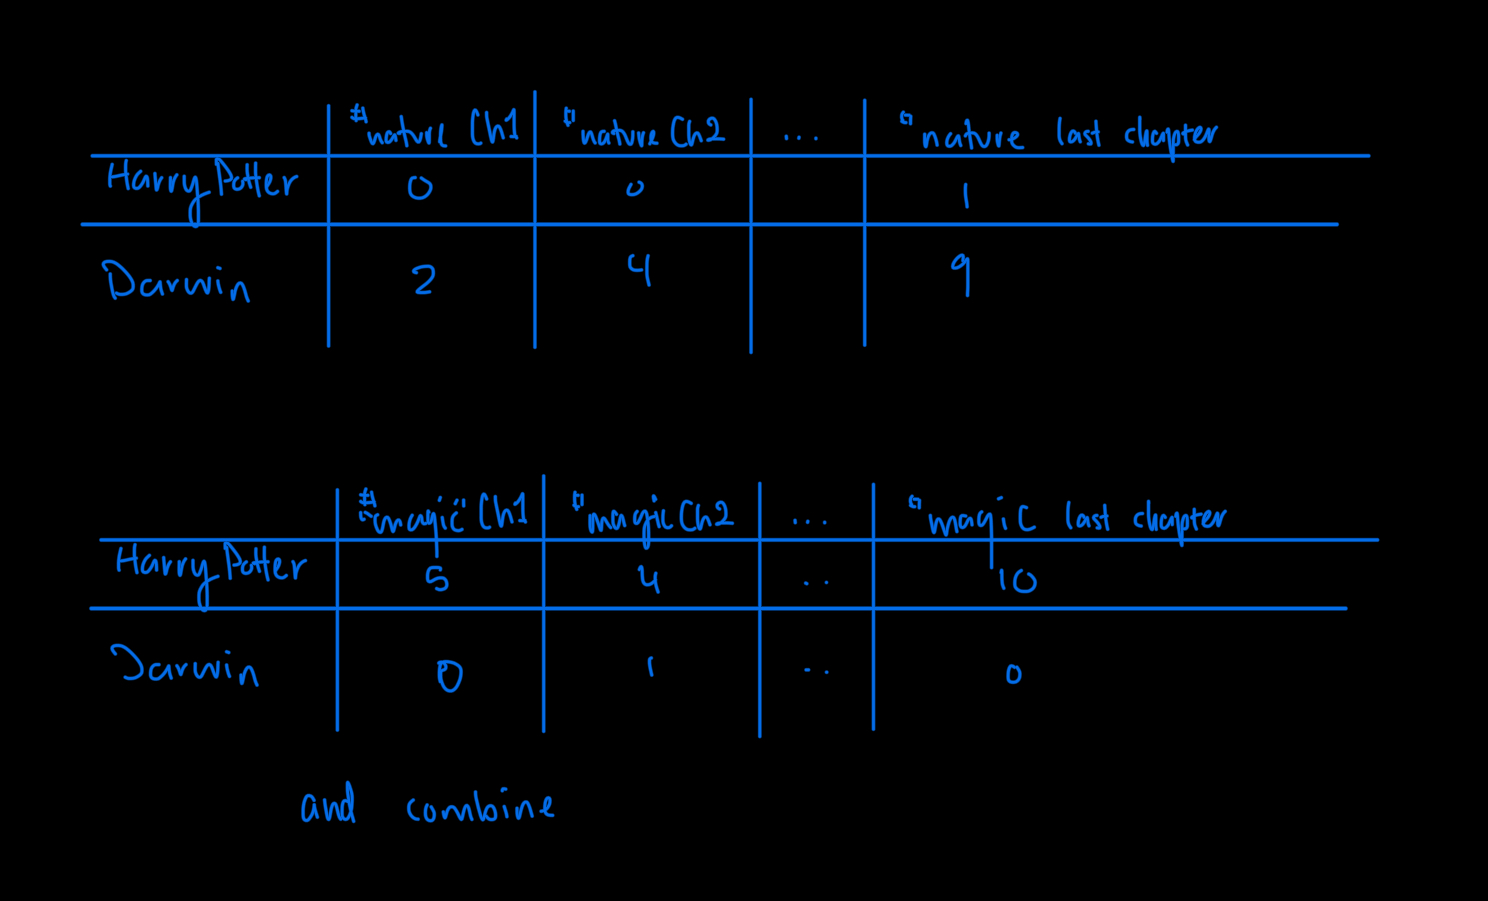 #nature Ch1 #nature Ch2 ... #nature last chapter
Harry Potter 0 0 1
Darwin 2 4 9
#"magic" Ch1 #magic Ch2 ... #magic last chapter
Harry Potter 5 4 .. 10
Darwin 0 1 .. 0
and combine